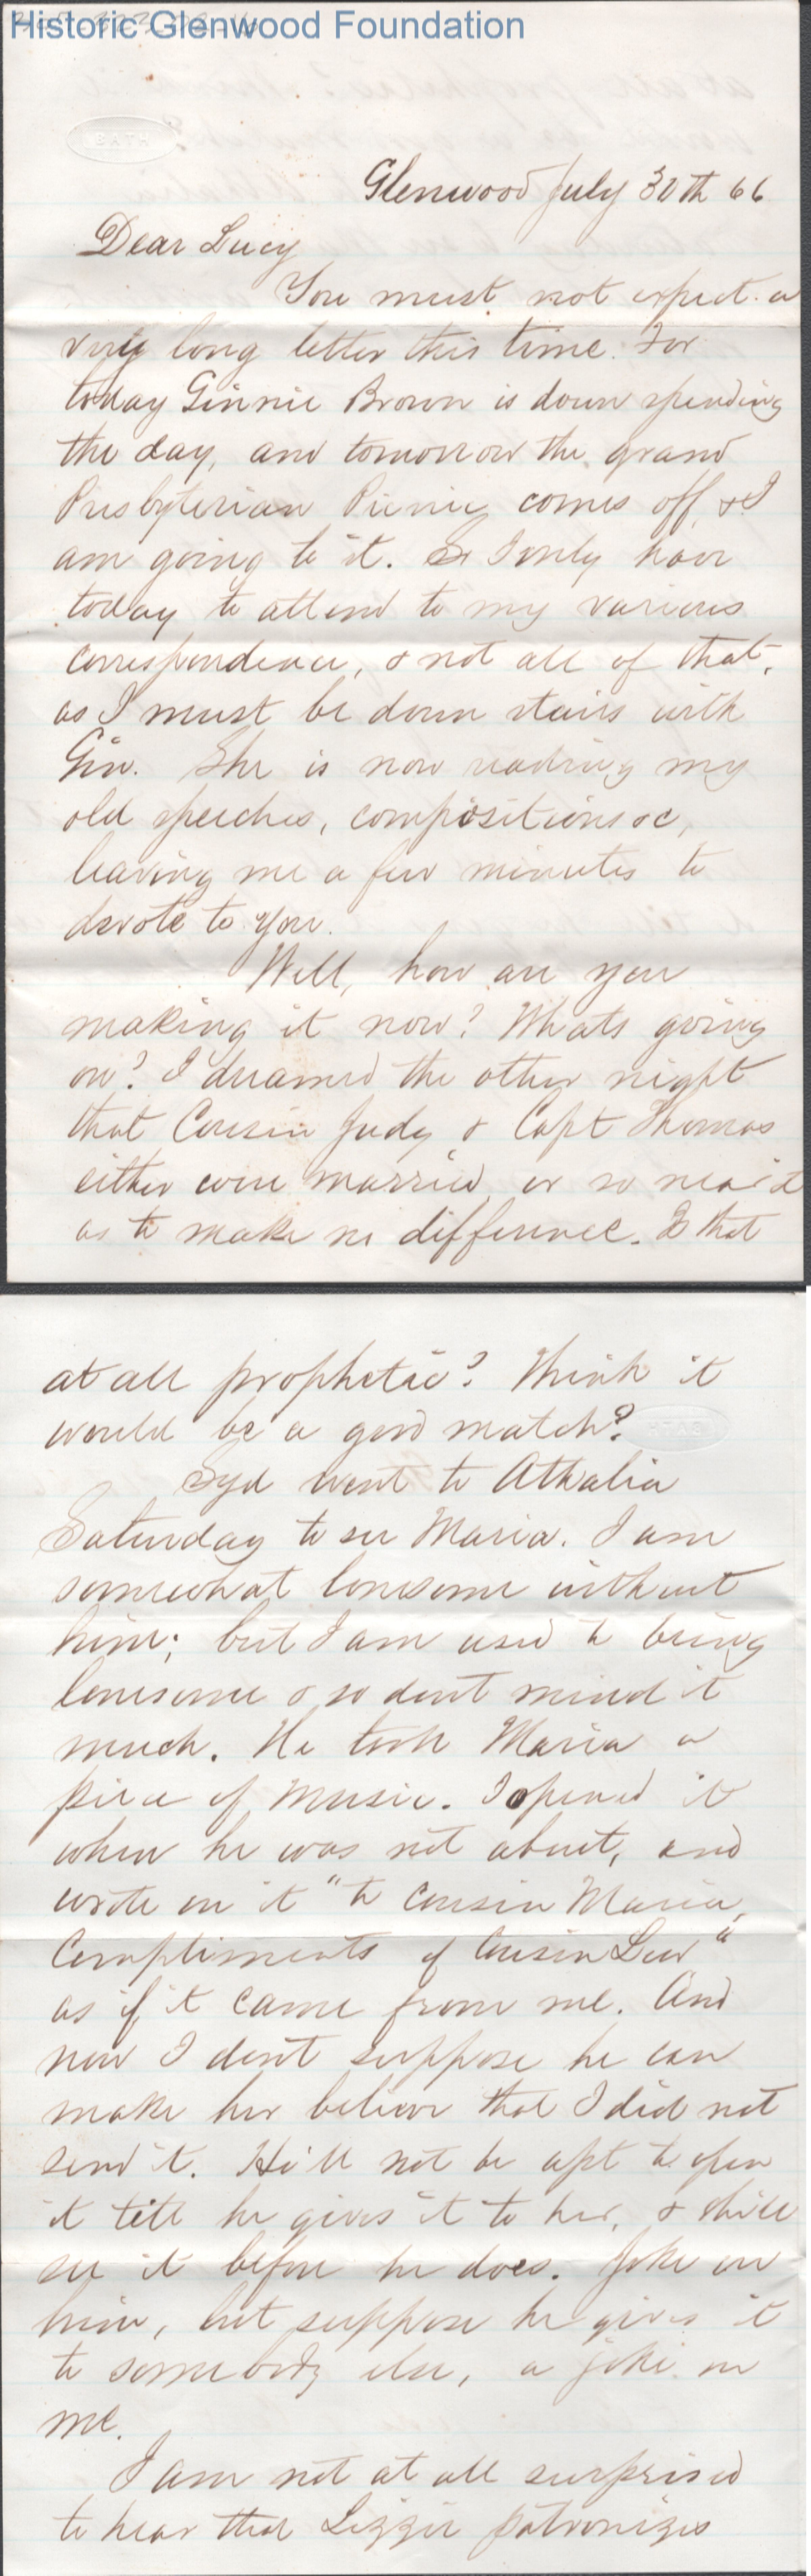 Historic Glenwood Foundation
BATH
Glenwood July 30th 66
Dear Lucy
You must not expect a
very long letter this time. For
today Ginnie Brown is down spending
the day, and tomorrow the grand
Presbyterian Picnic comes off, & I
am going to it. So I only have
today to attend to my various
correspondence, & not all of that,
as I must be down stairs with
Gin. She is now reading my
old speeches, compositions &c,
leaving me a few minutes to
devote to you.
Well, how are you
making it now? Whats going
on? I dreamed the other night
that Cousin Judy & Capt Thomas
either were married or so near it
as to make no difference. Is that
at all prophetic? Think it
would be a good match?
Syd went to Athalia
Saturday to see Maria. I am
somewhat lonesome without
him; but I am used to being
lonesome & so dont mind it
much. He took Maria a
piece of music. I opened it
when he was not about, and
wrote on it "to Cousin Maria,
Compliments of Cousin Lew"
as if it came from me. And
now I dont suppose he can
make her believe that I did not
send it. He'll not be apt to open
it till he gives it to her, & she'll
see it before he does. Joke on
him, but suppose he gives it
to somebody else, a joke on
me.
I am not at all surprised
to hear that Lizzie patronizes